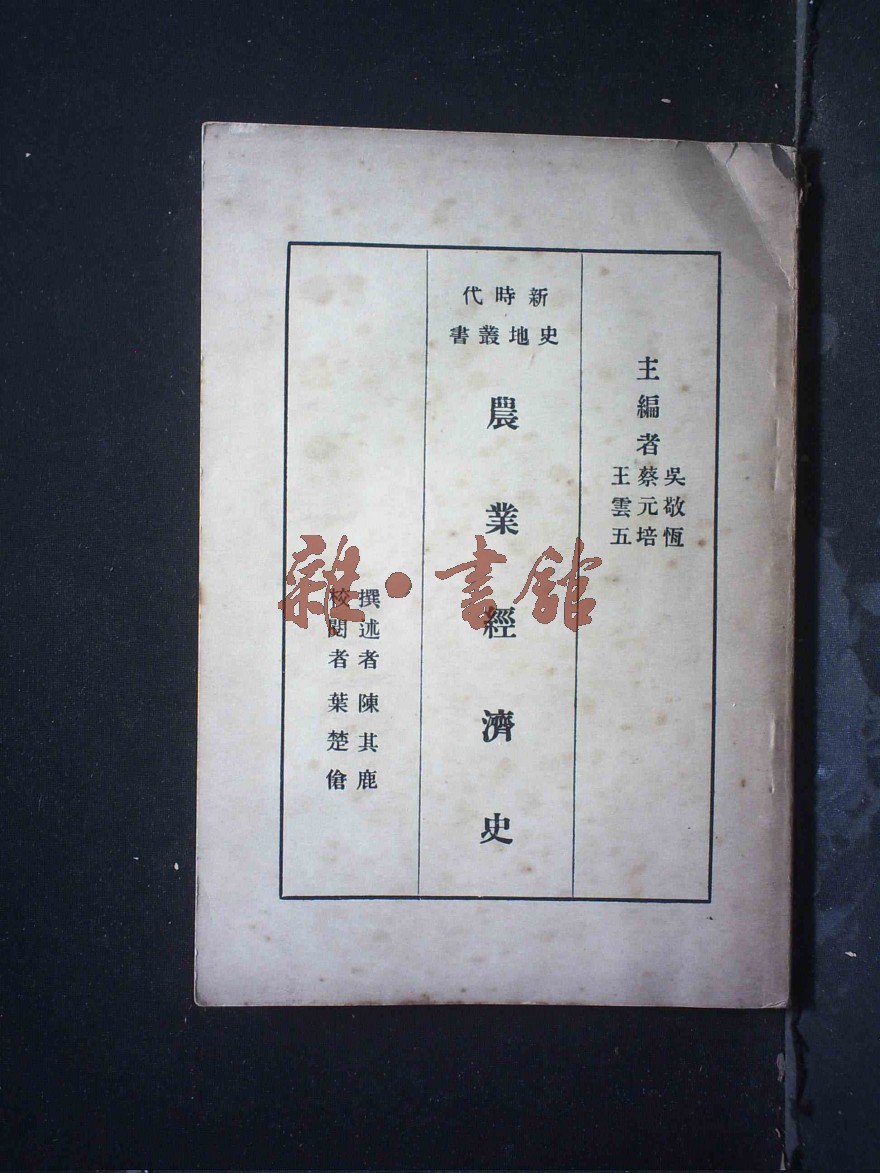 主編者
吳敬恆
蔡元培
王雲五
新時代
史地叢書
農業經濟史
撰述者 陳其鹿
校閱者 葉楚傖
雜·書館